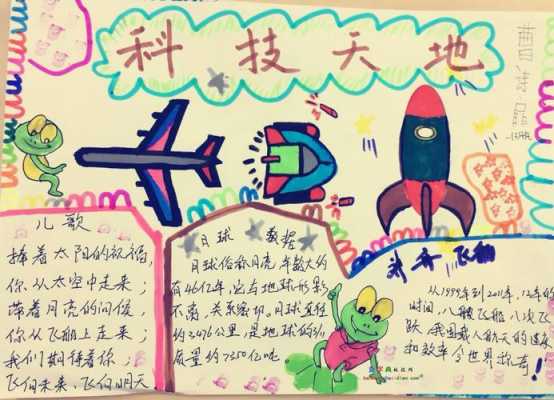 科技天地
儿歌
捧着太阳的祝福,
你从太空中走来;
带着月亮的问候,
你从飞船上走来;
我们期待着你;
飞向未来,飞向明天
月球数据
月球俗称月亮,年龄大约
有46亿年,它与地球形影
不离,关系密切,月球直径
约3476公里,是地球的3/11
质量约7350亿吨
神舟飞船
从1999年到2011年,12年的
时间,八艘飞船,八次飞
跃,我国载人航天的速度
和效率令世界称奇!